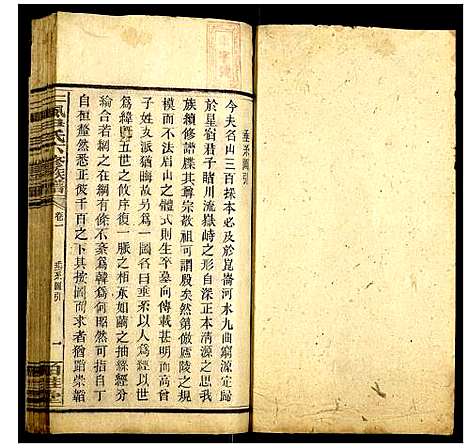 垂系圖引
今夫名山三百採本必及於昆崙河水九曲窮源定歸
於星宿君子川流嶽峙之形自深正本清源之思我
族續修譜牒其尊宗敬祖可謂殷矣然第倣廬陵之規
模而不法眉山之體式則生平墓向傳載甚明而高曾
子姓支派猶晦故另為一圖名曰垂系以人為經以世
為緯疊五世之攸序復一脈之相承如繭之抽絲經分
綸合若網之在綱有條不紊為韓為何昭然可指自丁
自桓釐然悉正彼千百之下其按圖而求者猶蹈崇韜
氏六修族譜
卷一
垂系圖引
一